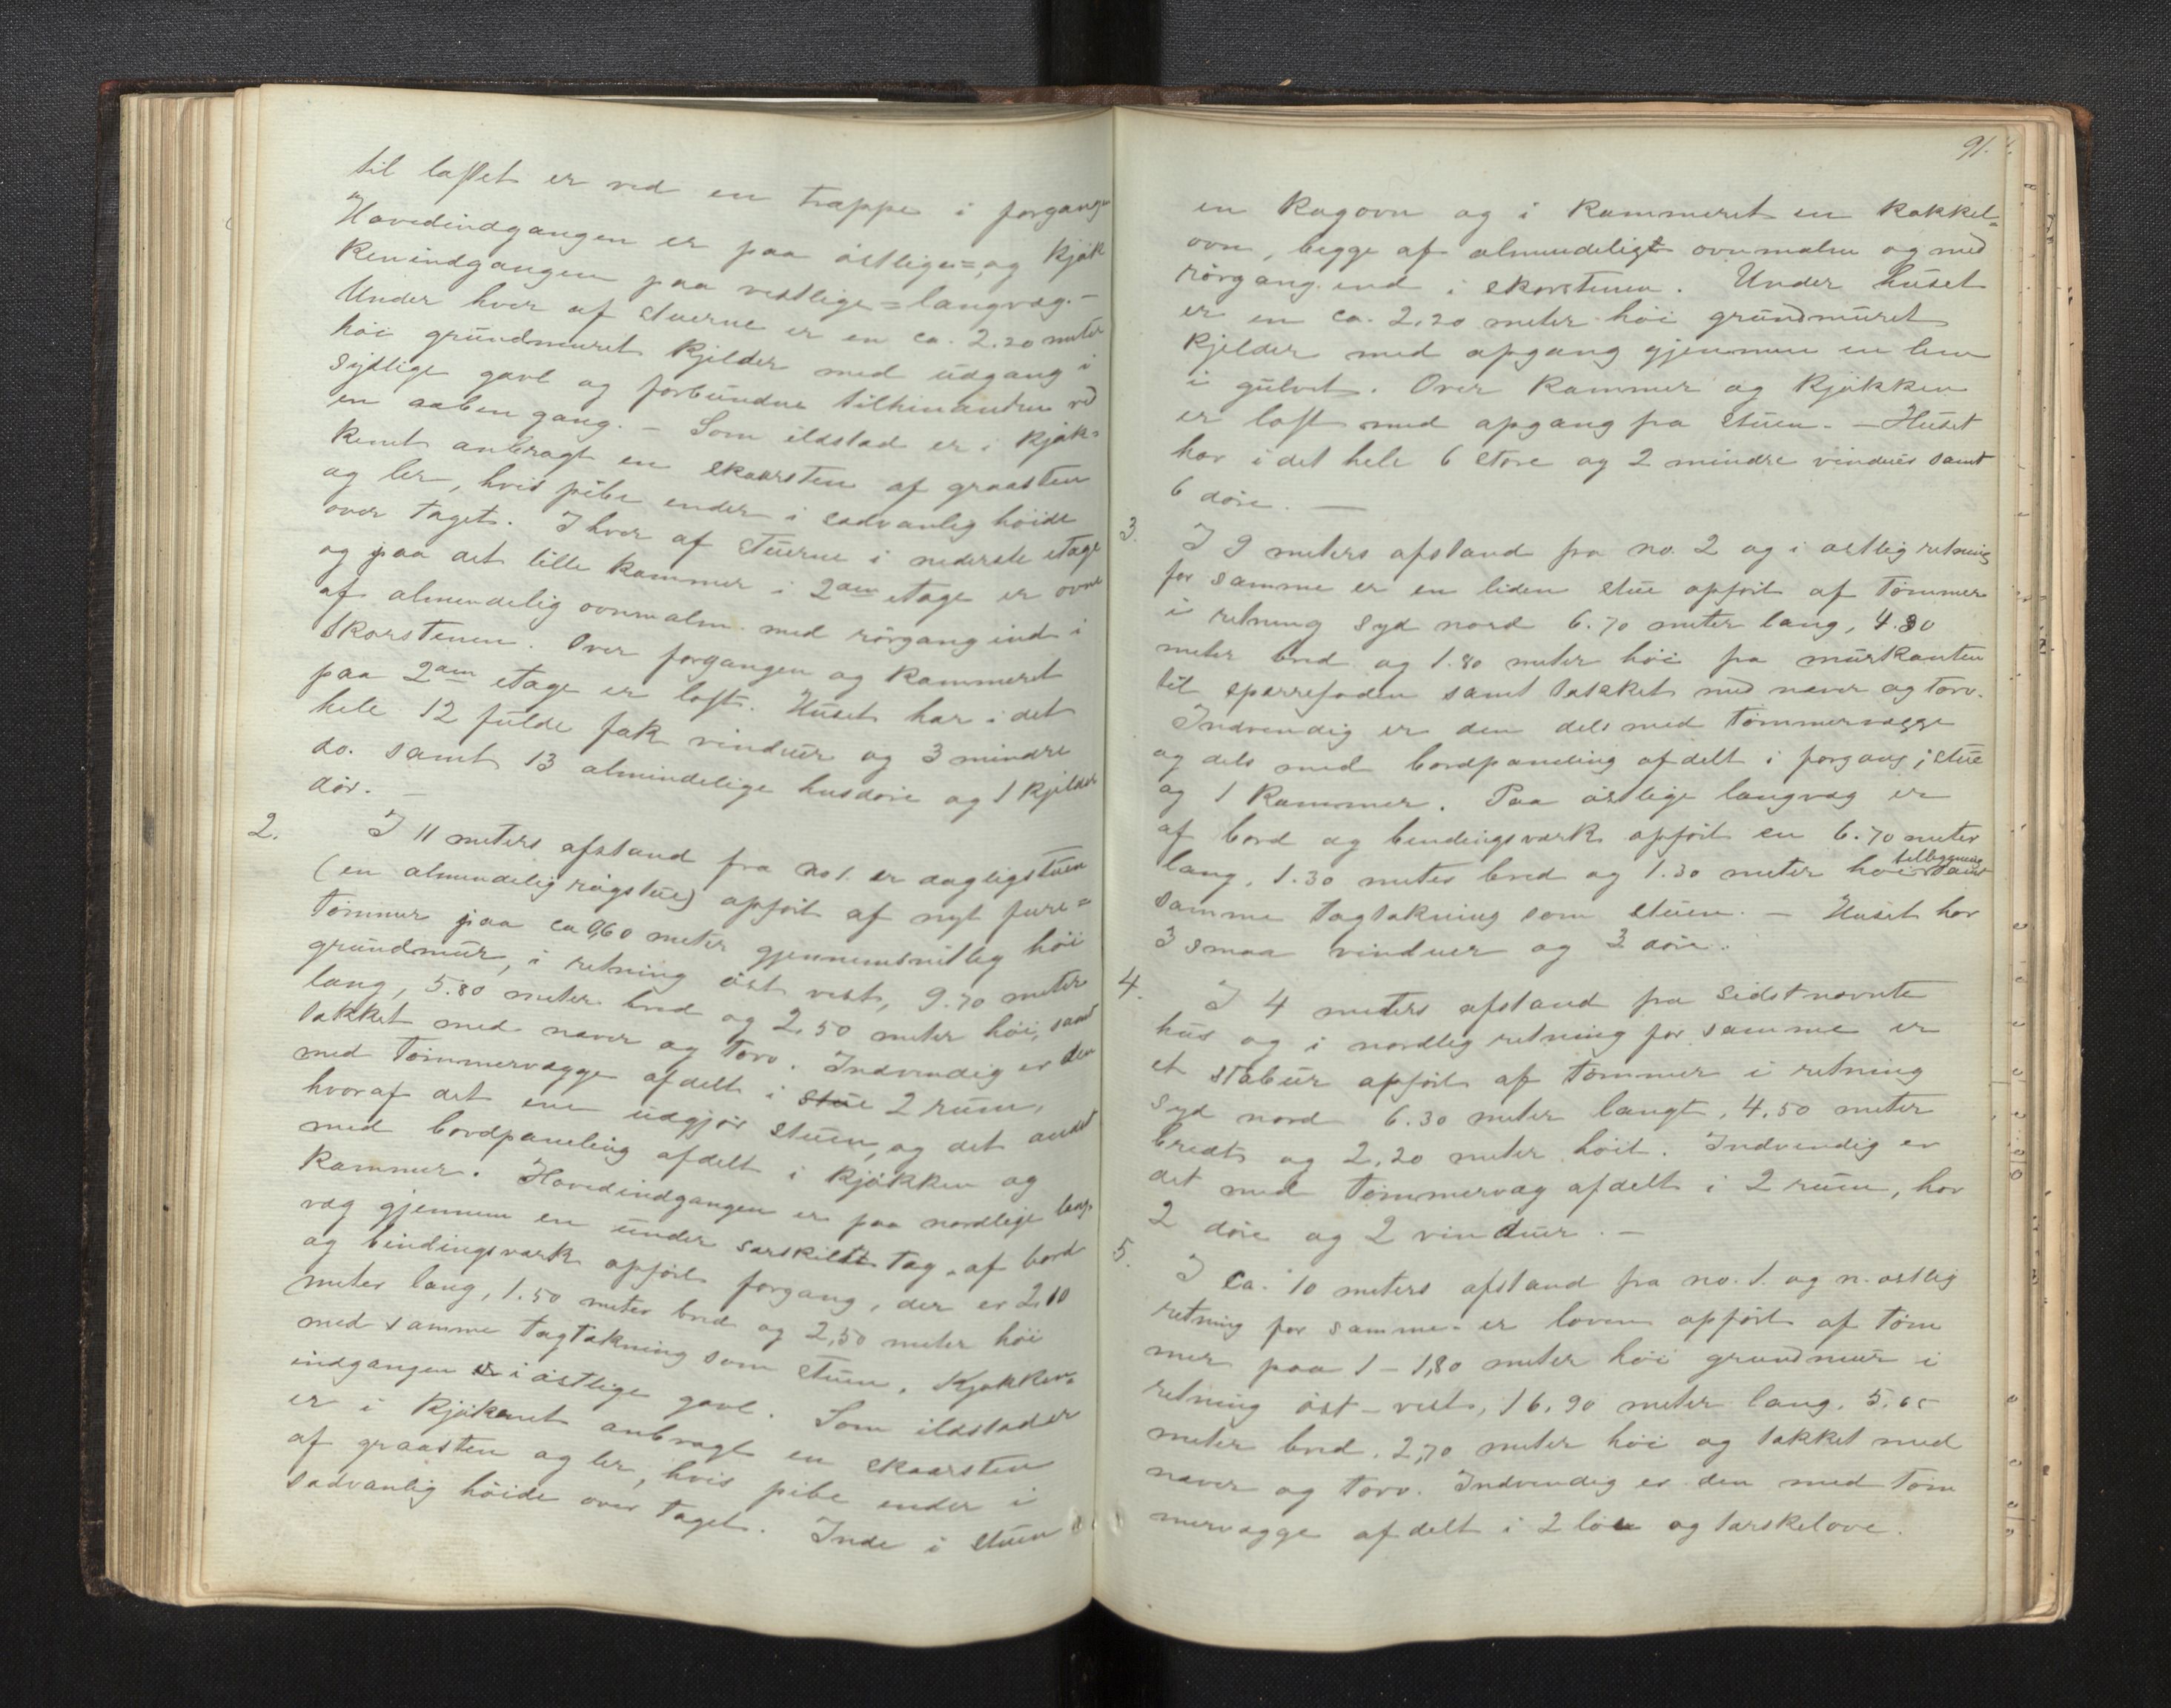 til loftet er ved en trappe i forgangen
Hovedindgangen er paa østlige= og kjøk
kenindgangen paa vestlige=langvæg. -
Under hver af stuerne er en ca. 2.20 meter
høi grundmuret kjelder med udgang i
sydlige gavl og forbundne tilhinanden ved
en aaben gang. - Som ildstad er i kjøk-
kenet anbragt en skaarsten af graasten
og ler, hvis pibe ender i sædvanlig høide
over taget. I hver af stuerne i nederste etage
og paa det lille kammer i 2den etage er ovne
af almendelig ovnmalm med rørgang ind i
skorstenen. Over forgangen og kammeret
paa 2den etage er loft. Huset har i det
hele 12 fulde fak vinduer og 3 mindre
do. samt 13 almindelige husdøre og 1 kjelder
dør. -
2. I 11 meters afstand fra no 1. er dagligstuen
(en almendelig røgstue) opført af nyt fure=
tømmer paa ca 0,60 meter gjennemsnitlig høi
grundmur, i retning øst vest, 9.70 meter
lang, 5.80 meter bred og 2,50 meter høi, samt
tækket med næver og torv. Indvendig er den
med tømmervægge afdelt i stue 2 rum,
hvoraf det ene udgjør stuen, og det andet
med bordpaneling afdelt i kjøkken og
kammer. Hovedindgangen er paa nordlige lang-
væg gjennem en under særskildt tag, af bord
og bindingsværk opført forgang, der er 2,10
meter lang, 1.50 meter bred og 2,50 meter høi
med samme tagtækning som stuen. Kjøkken-
indgangen er i østlige gavl. Som ildstader
er i kjøkenet anbragt en skaarsten
af graasten og ler, hvis pibe ender i
sædvanlig høide over taget. Inde i stuen
91.
en kagovn og i kammeret en kakkel=
ovn, begge af almendeligt ovnmalm og med
rørgang ind i skorstenen. Under huset
er en ca. 2,20 meter høi grundmuret
kjelder med opgang gjennem en lem
i gulvet. Over kammer og kjøkken
er loft med opgang fra stuen. - Huset
har i det hele 6 store og 2 mindre vinduer samt
6 døre. -
3. I 9 meters afstand fra no. 2 og i østlig retning
for samme er en liden stue opført af tømmer
i retning syd nord 6.70 meter lang, 4.80
meter bred og 1.80 meter høi fra murkanten
til sperrefoden samt tækket med næver og torv.
Indvendig er den dels med tømmervægge
og dels med bordpaneling afdelt i forgang, stue
og 1 kammer. Paa østlige langvæg er
af bord og bindingsværk opført en 6.70 meter
lang, 1.30 meter bred og 1.30 meter høi tilbygning
samme tagtækning som stuen. - Huset har
3 smaa vinduer og 3 døre.
4. I 4 meters afstand fra sidstnævnte
hus og i nordlig retning for samme er
et stabur opført af tømmer i retning
syd nord 6.30 meter langt, 4,50 meter
bredt og 2,20 meter høit. Indvendig er
det med tømmervæg afdelt i 2 rum, har
2 døre og 2 vinduer. -
5. I ca. 10 meters afstand fra no. 1. og n. østlig
retning for samme er løven opført af tøm
mer paa 1 - 1,80 meter høi grundmur i
retning øst - vest, 16,90 meter lang, 5,65
meter bred, 2,70 meter høi og tækket med
næver og torv. Indvendig er den med tøm
mervægge afdelt i 2 løe og tærskelove.